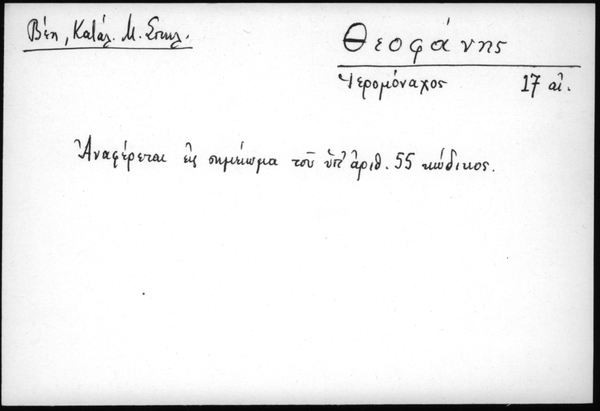 Βέη, Κατάλ. Μ. Σπηλ.
Θεοφάνης
Ἱερομόναχος 17 αἰ.
Ἀναφέρεται εἰς σημείωμα τοῦ ὑπ' ἀριθ. 55 κώδικος.